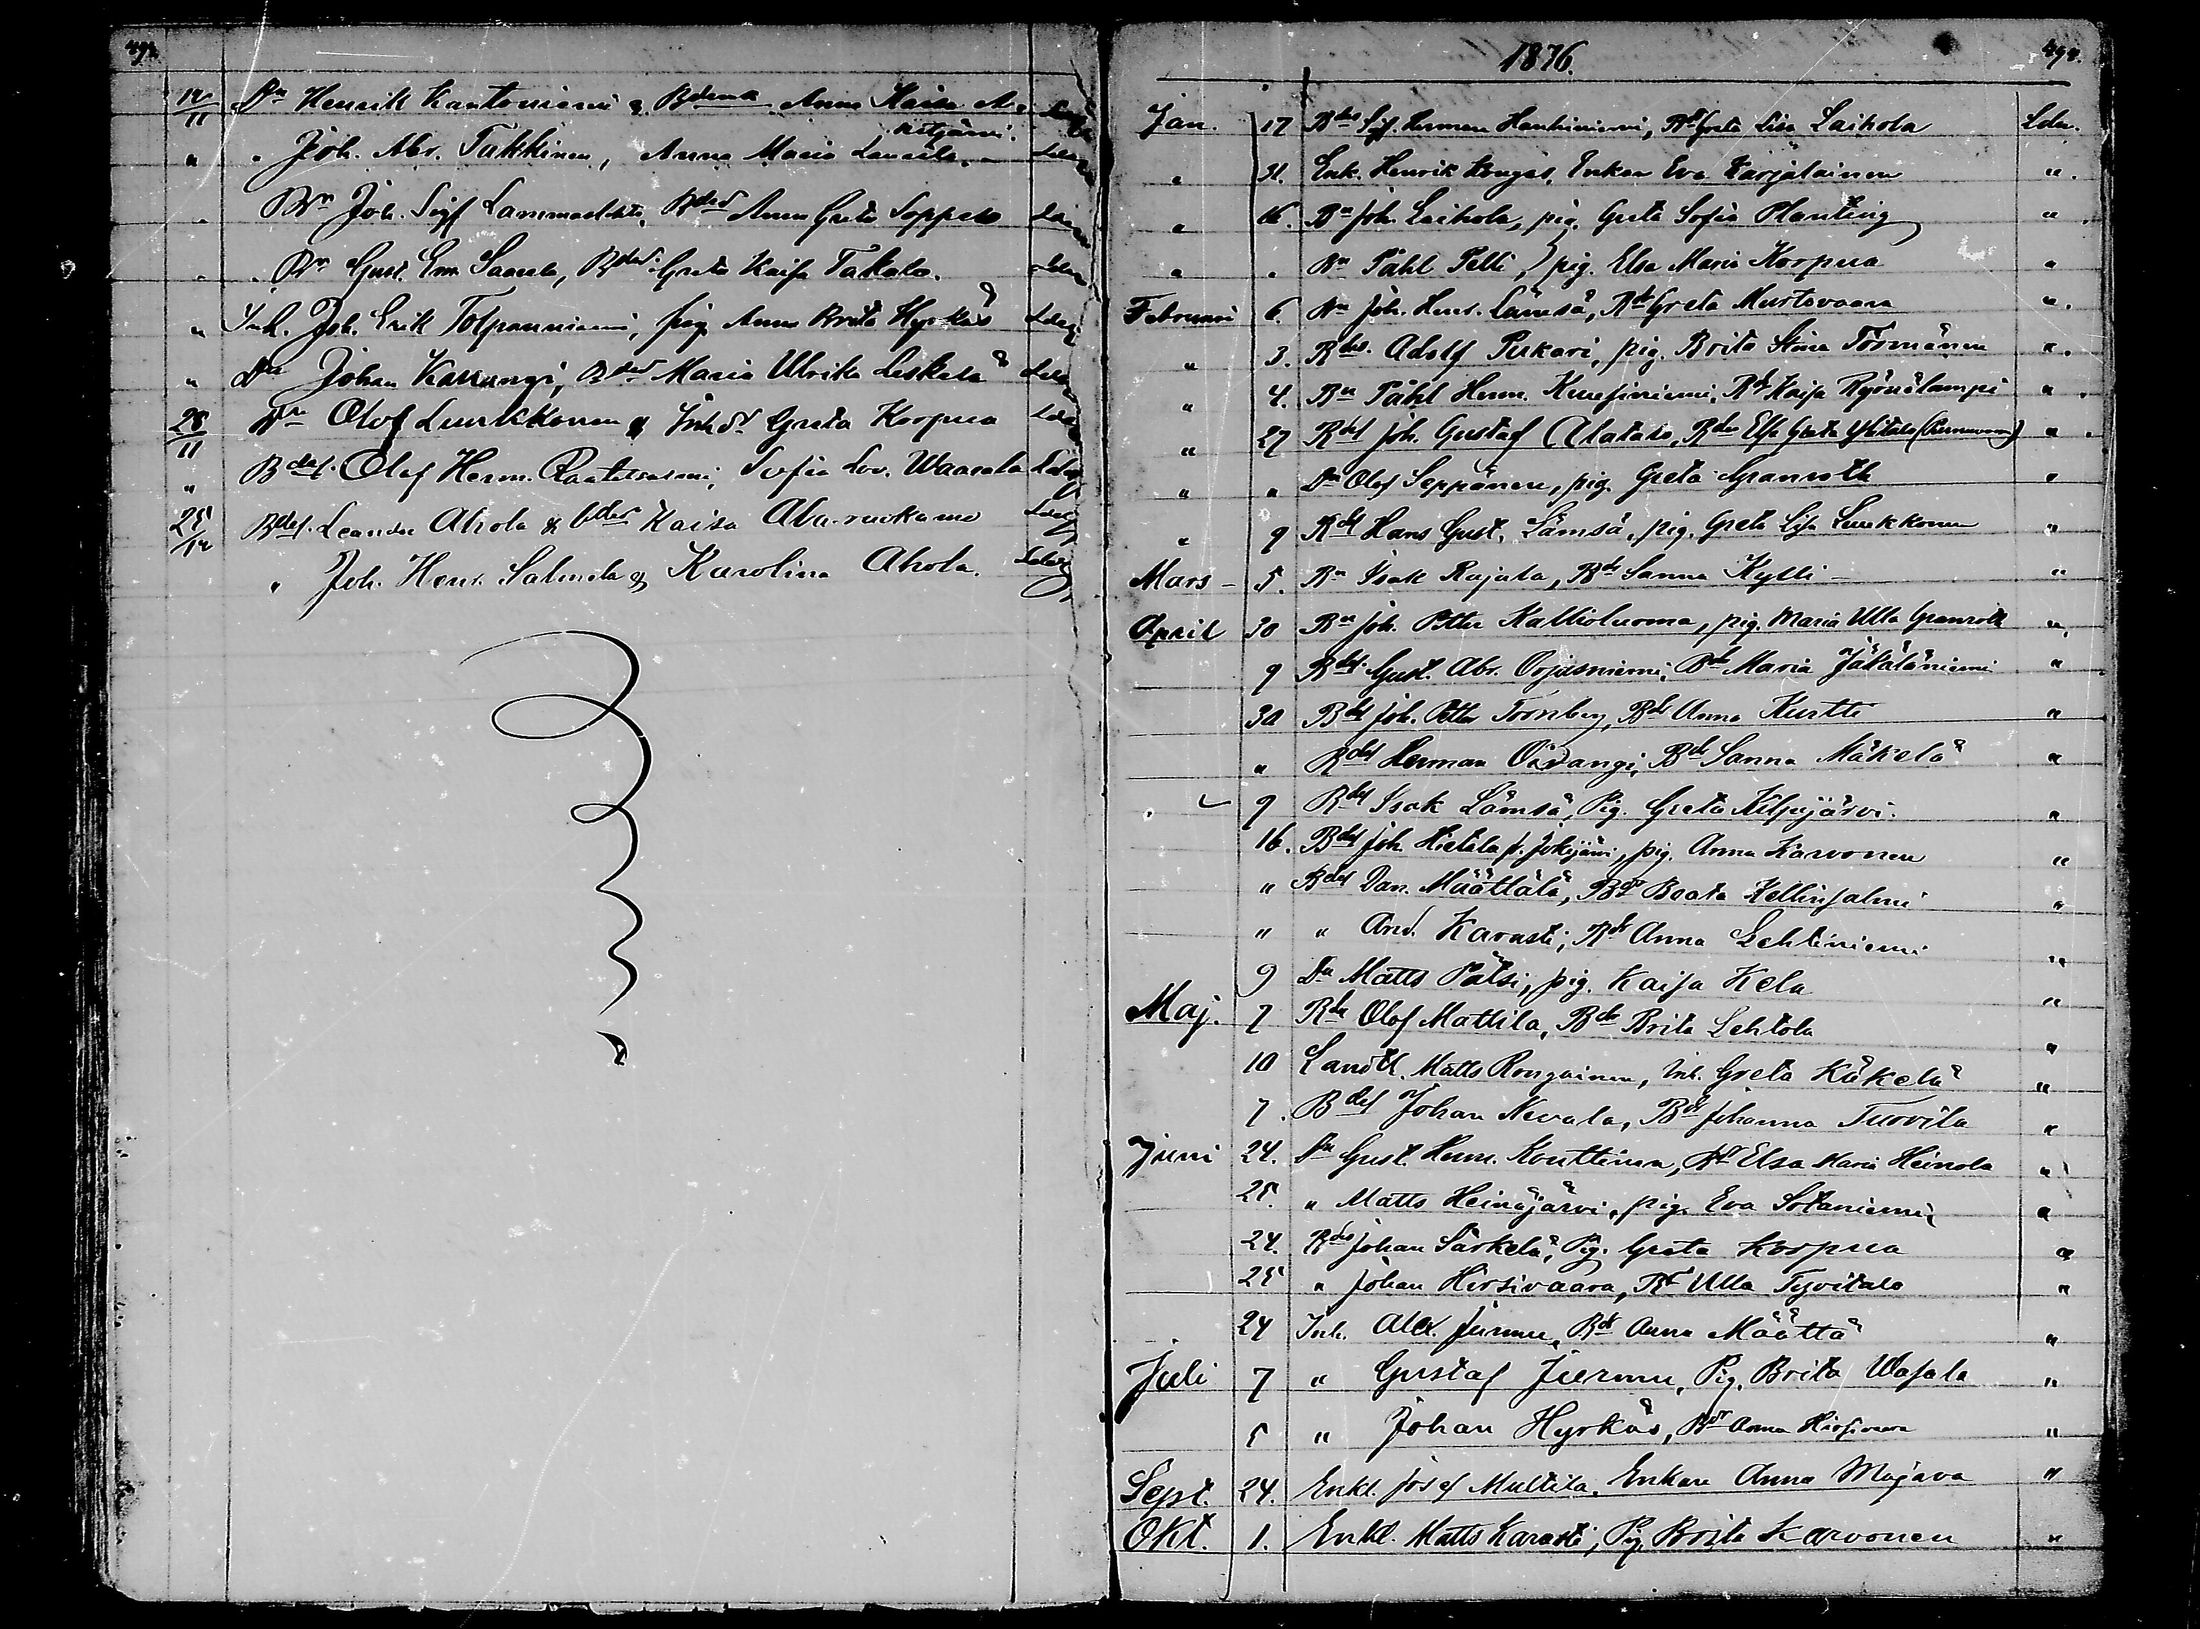 12/11 Dn Henrik Kantoniemi & Bdena Anna Kaisa
" " Joh. Abr. Takkinen, Anna Maria
" Bn Joh. Sigf Lammasleht, Bdrs Anna Greta Soppela
" Bn Gust. Em. Saarela, Bdrs Greta Kaisa Takalo.
" Inh. Joh. Erik Tolpanniemi, pig. Anna Brita Hyrkäs
" Dn Johan Karungi, Bdrs Maria Ulrika Leskelä
28/11 Dn Olof Luukkonen & Inhdr Greta Korpua
" Bdes. Olof Herm. Raatesalmi, Sofia Lov. Waarala
25/12 Bdes. Leander Ahola & bdrs Kaisa
" Joh. Henr. Salmela & Karolina Ahola.
1876.
Jan. 17 Bdes Sigf. Herman Hankiniemi, Bdr Greta Lisa Laihola
" 31. Enk. Henrik Kongas, Enkan Eva Karjalainen ".
" 16. Bn Joh. Laihola, pig. Greta Sofia Planting "
" " Bn Påhl Pelli, pig. Elsa Maria Korpua "
Februari 6. Bn Joh. Henr. Lämsä, Bdr Greta Mustavaara ".
" 3. Bdes. Adolf Pirkari, pig. Brita Stina Törmänen ".
" 4. Bn Påhl Herm. Kuusiniemi, Bdr Kaisa Ryönälampi "
" 27 Bdes Joh. Gustaf Alatalo, Bdr Elsa Greta Ylitalo ".
" " Dn Olof Seppänen, pig. Greta Granroth "
" 9 Bdes Hans Gust. Lämsä, pig. Greta Lisa Luukkonen "
Mars - 5. Bn Isak Rajala, Bdr Sanna Kylli - "
April 30 Bn Joh. Petter Kallioluoma, pig. Maria Ulla Granroth ".
9 Bdes. Gust. Abr. Orjasniemi, Bdr Maria Jäkäläniemi "
30 Bdes Joh. Petter Tornberg, Bdr Anna Kurtti "
" Bdes Herman Oivangi, Bdr Sanna Mäkelä "
9 Bdes Isak Lämsä, Pig. Greta Kilpijärvi. "
16. Bdes Joh. Hietala f. Jokijärvi, pig. Anna Karvonen "
" Bdes Dan. Määttälä, Bdr Beata Kellinsalmi "
" " And. Karasti, Bdr Anna Lehtiniemi "
9 Dn Matts Pätsi, pig. Kaisa Kela "
Maj. 7 Bdes Olof Mattila, Bdr Brita Lehtola "
10 Landth. Matts Rongainen, Inh. Greta Käkelä "
7. Bdes Johan Nevala, Bdr Johanna Tuovila "
Juni 24. Dn Gust. Herm. Kouttinen, Bdr Elsa Maria Heinola "
25. " Matts Heinäjärvi, pig. Eva Sotaniemi "
24. Bdes Johan Särkelä, Pig. Greta Korpua "
25 " Johan Hirsivaara, Bdr Ulla Tyvitalo "
24 Inh. Alex. Jurmu, Bdr Anna Määttä "
Juli 7 " Gustaf Jurmu, Pig. Brita Wasala "
5 " Johan Hyrkäs, Bdr Anna Hirsivaara "
Sept. 24. Enkl. Josef Multila, Enkan Anna Majava "
Okt. 1. Enkl. Matts Karasti, Pig. Brita Karvonen "